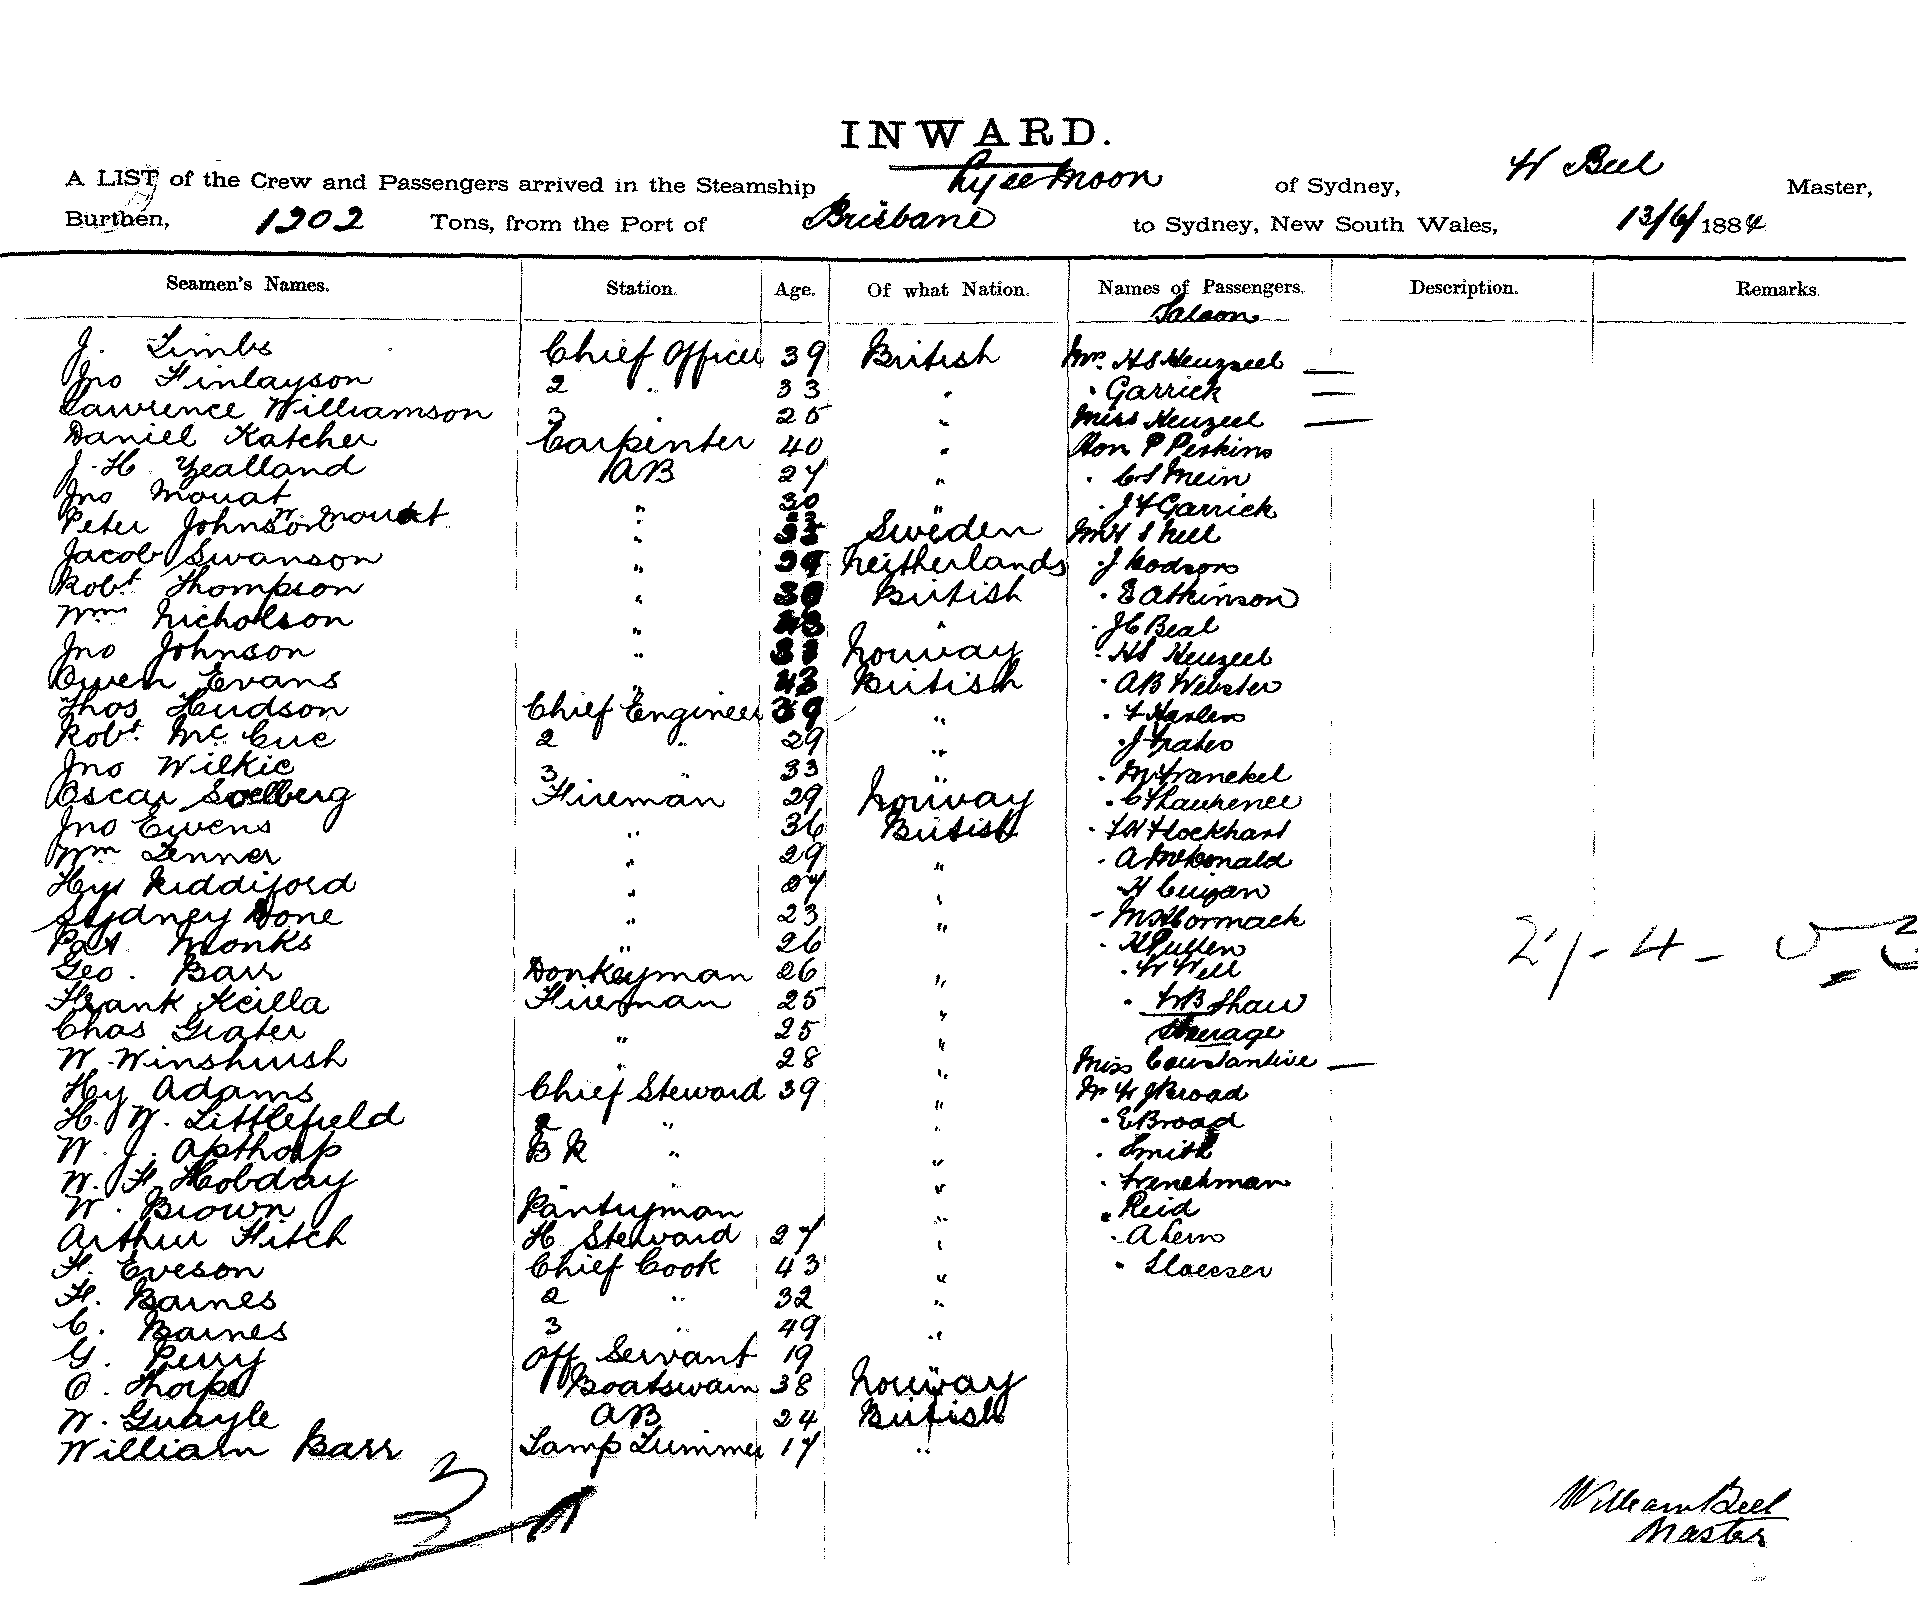 INWARD.
A LIST of the Crew and Passengers arrived in the Steamship Ly ee Moon of Sydney, W Beel Master,
Burthen, 1202 Tons, from the Port of Brisbane to Sydney, New South Wales, 13/6/1884
Seamen's Names. Station. Age. Of what Nation. Names of Passengers. Description. Remarks.
Saloon
J. Limbs Chief Officer 39 British Mrs. H S Heuzeel —
Jno Finlayson 2 " 33 " " Garrick —
Lawrence Williamson 3 " 25 " Miss Heuzeel —
Daniel Katcher Carpenter 40 " Hon P Perkins
J. H. Yealland AB 27 " " C S Mein
Jno Mouat " 30 " " J F Garrick
Peter Johnson " Sweden Mr H S Nell
W. Mouat
Jacob Swanson " 39 Neitherlands " J Hodgson
Robt Thompson " 30 British " E Atkinson
Wm Nicholson " " " J C Beal
Jno Johnson " Norway " HS Heuzeel
Owen Evans " 43 British " AB Webster
Thos Hudson Chief Engineer 39 "
Robt. McCue 2 " 29 " " J
Jno Wilkie 3 " 33 " " Franckel
Oscar Soelberg Fireman 29 Norway " Laurence
Jno Ewens " 36 British " Lockhart
Wm Tenner " 29 " " A McDonald
Hy Riddiford " 27 " H
Sydney Done " 23 " " McCormack
Pat Monks " 26 " " H Pullen
Geo. Barr Donkeyman 26 " " W Well
Frank Keilla Fireman 25 " " W B Shaw
Chas Grater " 25 " Steerage
W. Winshurst " 28 " Miss Constantine —
Hy Adams Chief Steward 39 " Mr W J Broad
H. W. Littlefield 2 " " " E Broad
W. J. Apthorp B R " " " Smith
W. F. Hobday " " " Frenchman
W. Brown Pantryman " " Reid
Arthur Fitch H Steward 27 " " A
F. Eveson Chief Cook 43 " "
F. Barnes 2 " 32 "
C. Barnes 3 " 49 "
G. Perry Off Servant 19 "
O. Thorpe Boatswain 38 Norway
W. Quayle AB 24 British
William Barr Lamp Trimmer 17 "
William Beel
Master